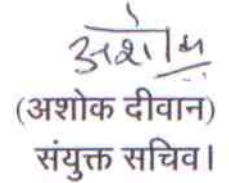 अशोक
(अशोक दीवान)
संयुक्त सचिव।